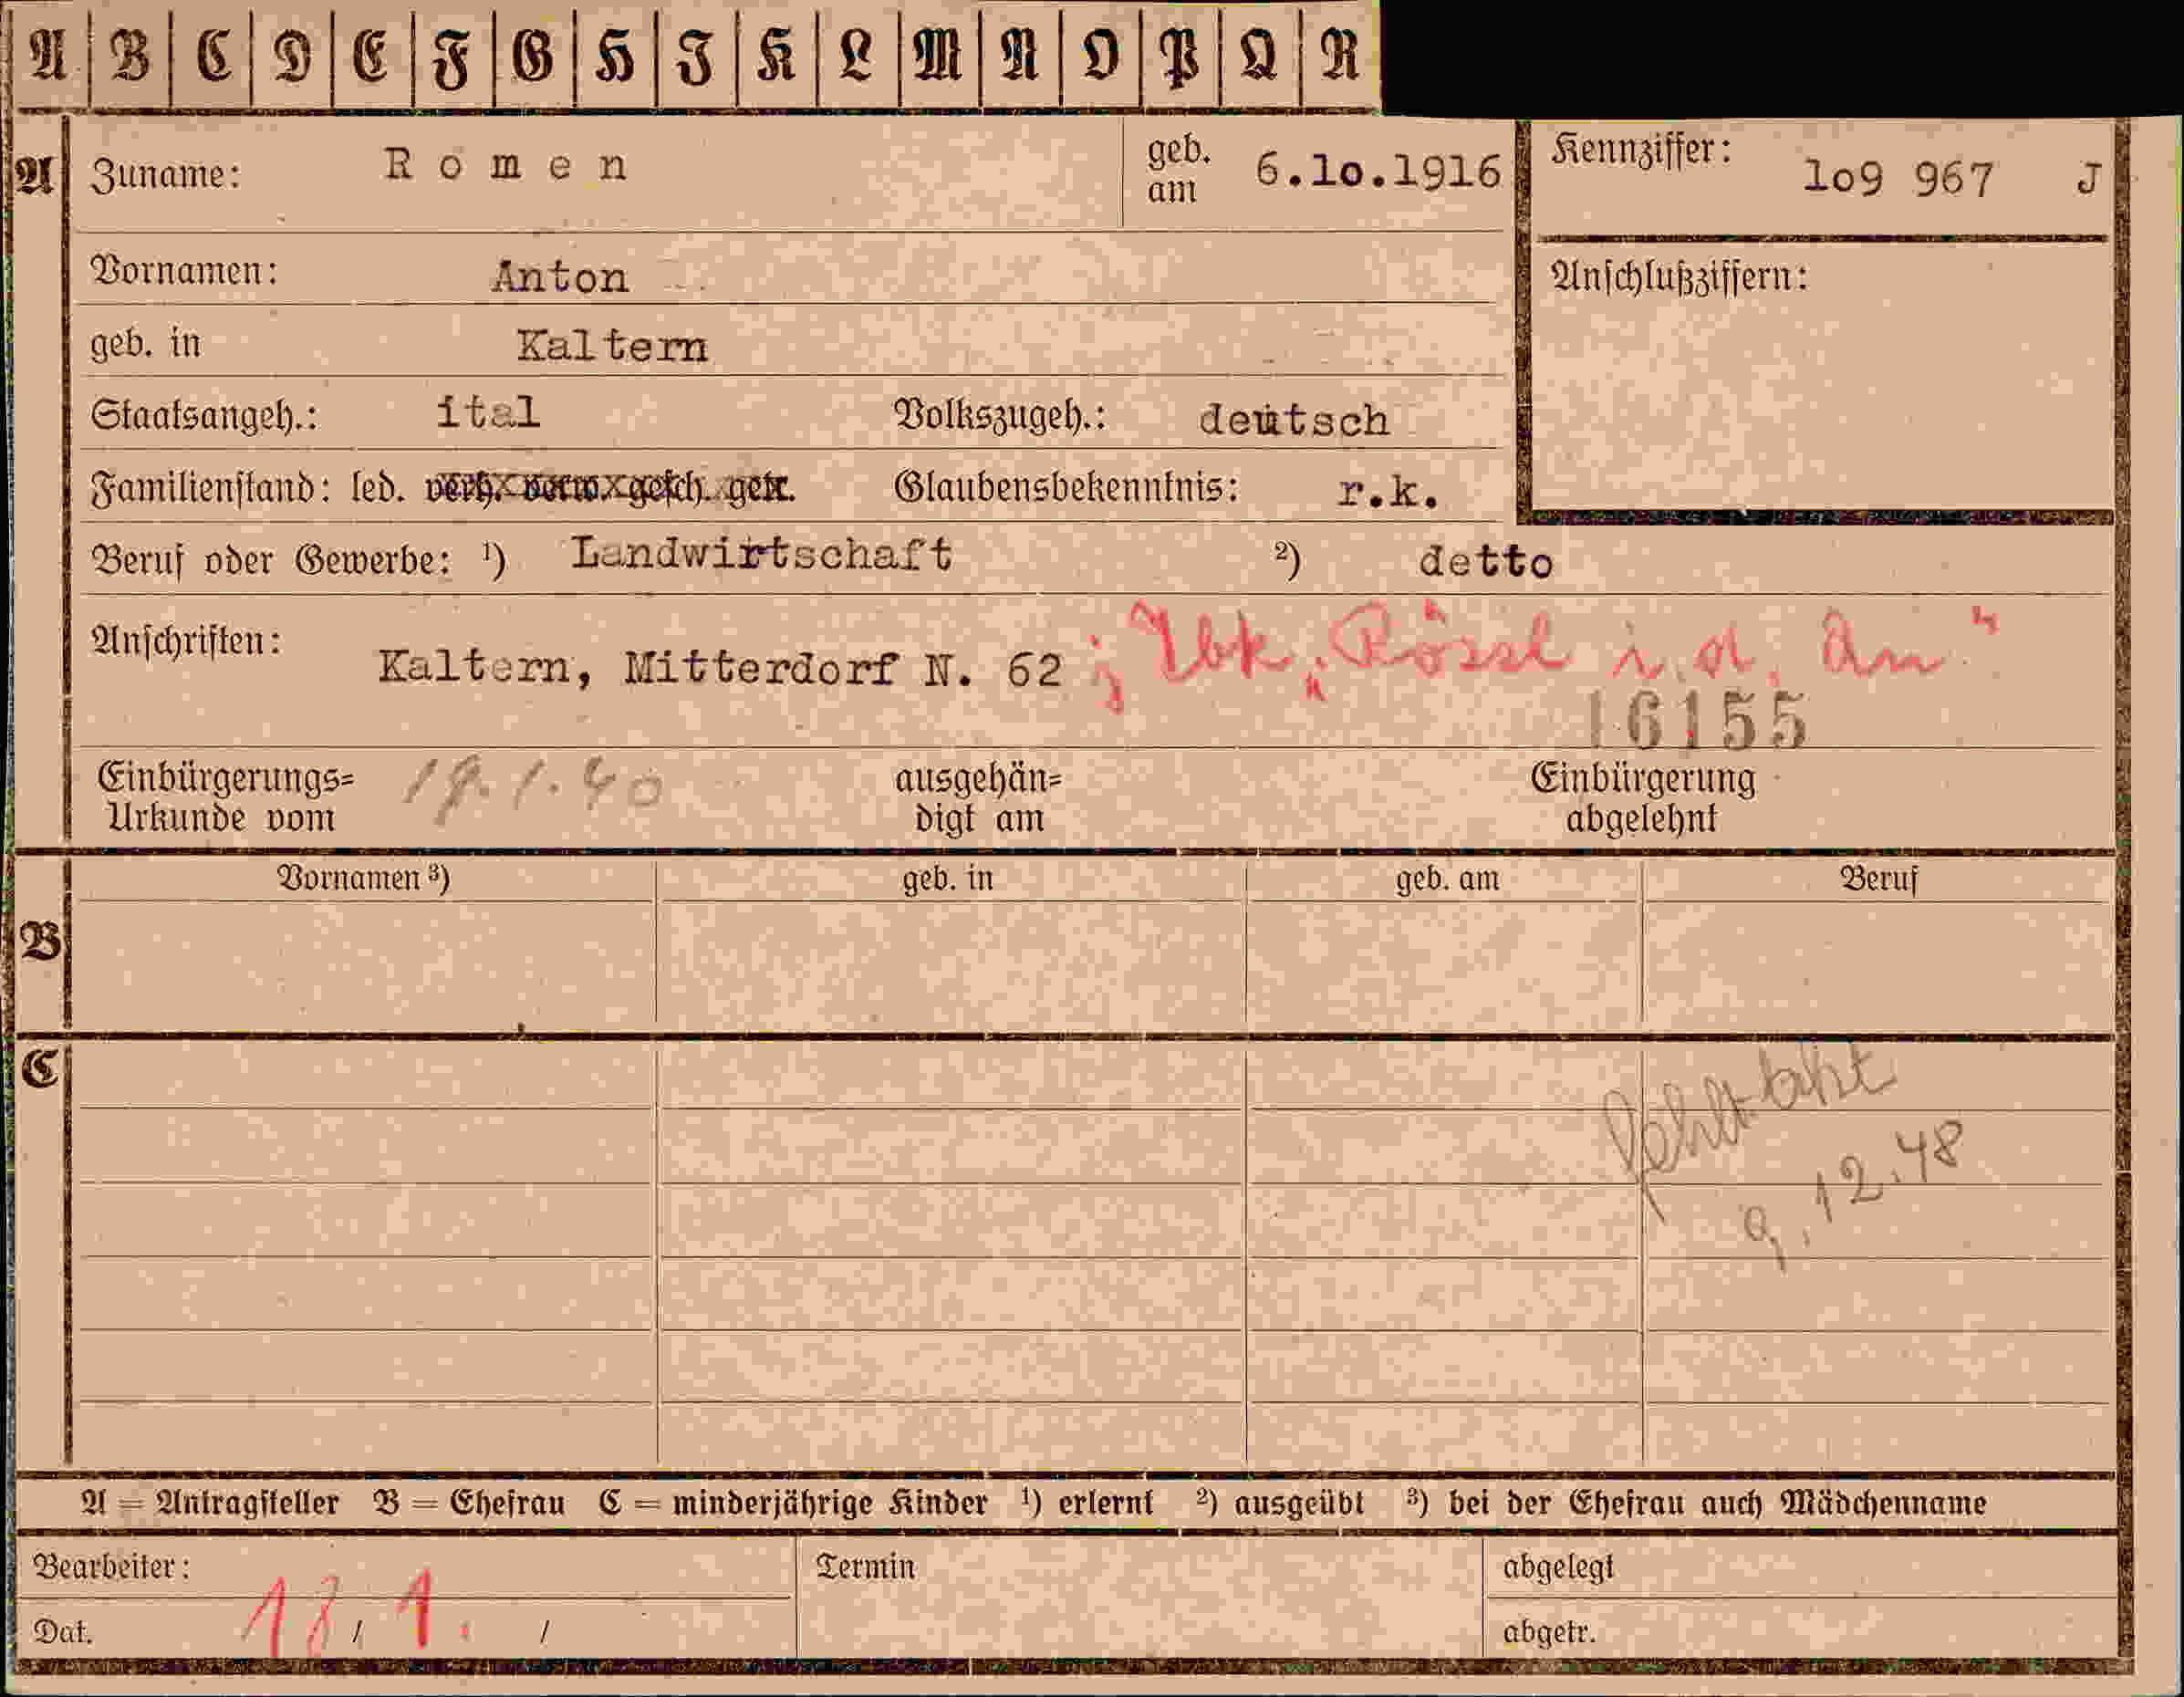 A B C D E F G H I K L M N O P Q R
A Zuname: Romen geb. am 6.lo.1916 Kennziffer: lo9 967 J
Vornamen: Anton Anschlußziffern:
geb. in Kaltern
Staatsangeh.: ital Volkszugeh.: deutsch
Familienstand: led. verh. verw. gesch. getr. Glaubensbekenntnis: r.k.
Beruf oder Gewerbe: ¹) Landwirtschaft ²) detto
Anschriften: Kaltern, Mitterdorf N. 62 ; Ibk „Rössl i. d. Au"
16155
Einbürgerungs= Urkunde vom 19.1.40 ausgehän= digt am Einbürgerung abgelehnt
Vornamen ³) geb. in geb. am Beruf
B
C
fehlt
9.12.48
A = Antragsteller B = Ehefrau C = minderjährige Kinder ¹) erlernt ²) ausgeübt ³) bei der Ehefrau auch Mädchenname
Bearbeiter: Termin abgelegt
Dat. 18/1. / abgetr.